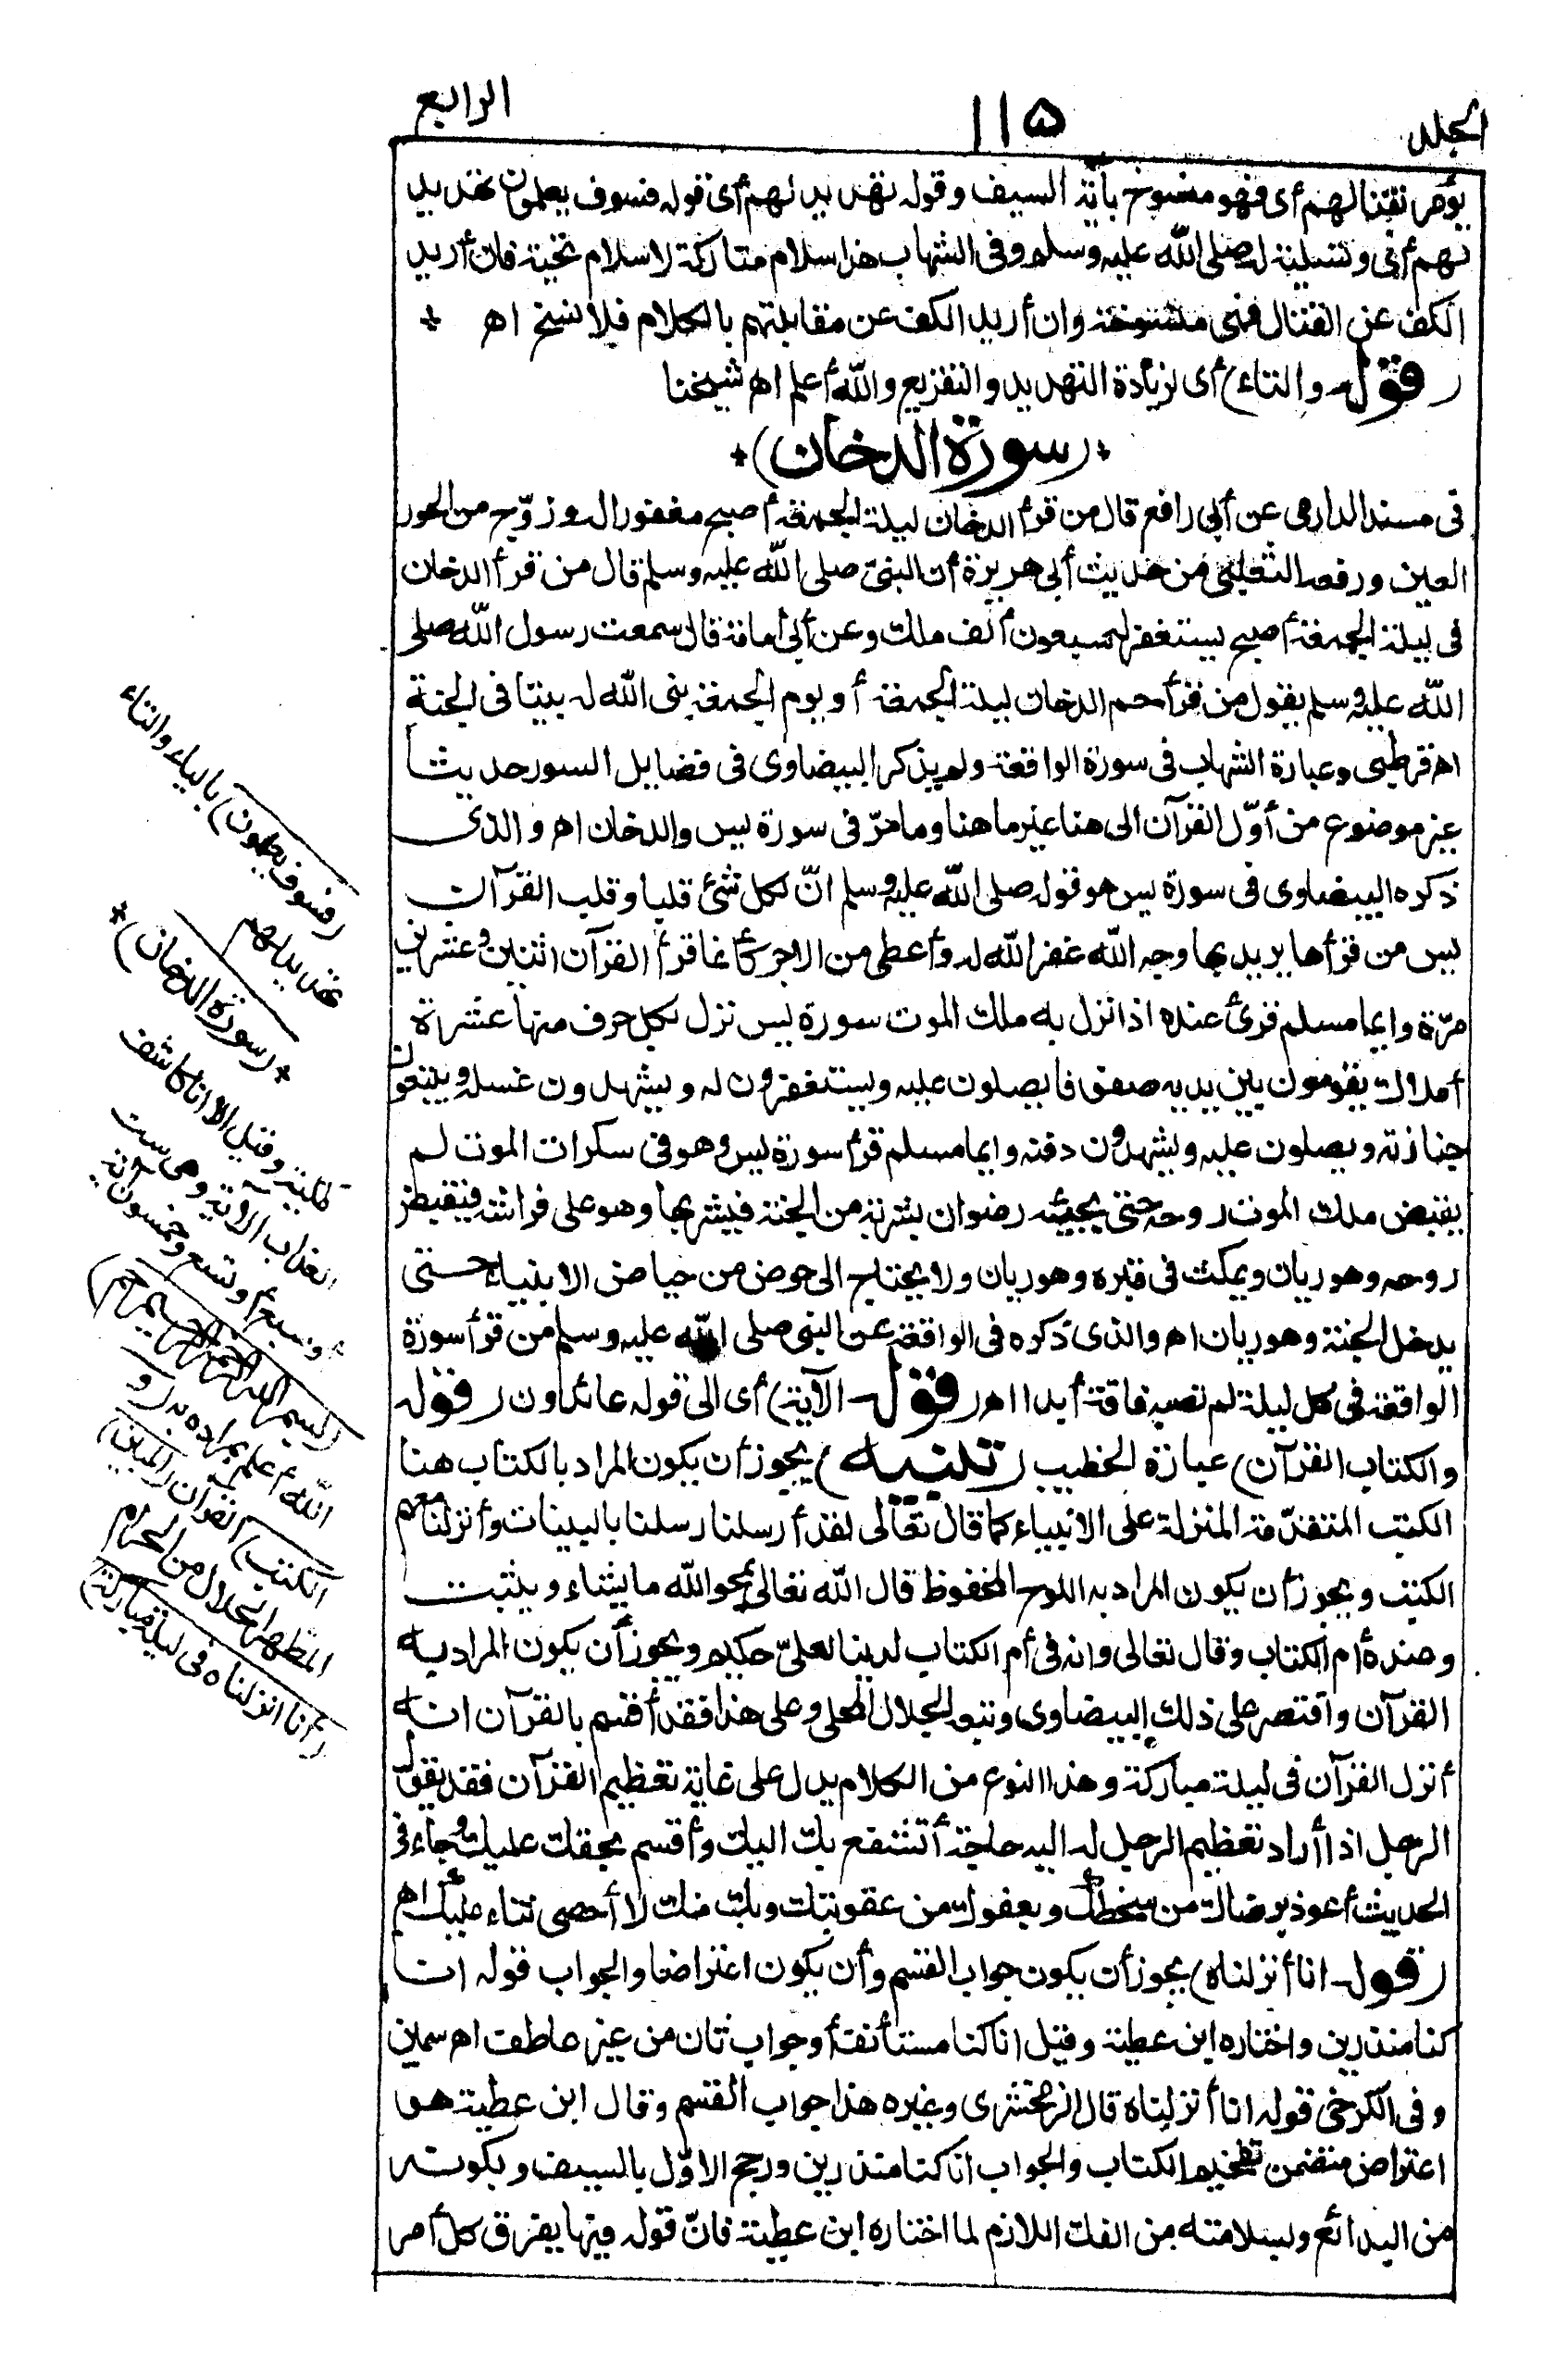 الجلد ١١٥ الرابع
يؤمر بقتالهم أى فهو منسوخ بآية السيف وقوله تهديد لهم أى قوله فسوف يعلمون تهديد
لهم أى وتسلية له صلى الله عليه وسلم وفى الشهاب هذا سلام متاركة لا سلام تحية فان أريد
الكف عن القتال فهى منسوخة وان أريد الكف عن مقابلتهم بالكلام فلا نسخ اه
(قوله والتاء) أى لزيادة التهديد والتقريع والله أعلم اه شيخنا
*(سورة الدخان)*
فى مسند الدارمى عن أبى رافع قال من قرأ الدخان ليلة الجمعة أصبح مغفورا له وزوّج من الحور
العين ورفعه الثعلبى من حديث أبى هريرة أن النبى صلى الله عليه وسلم قال من قرأ الدخان
فى ليلة الجمعة أصبح يستغفر له سبعون ألف ملك وعن أبى أمامة قال سمعت رسول الله صلى
الله عليه وسلم يقول من قرأ حم الدخان ليلة الجمعة أو يوم الجمعة بنى الله له بيتا فى الجنة
اه قرطبى وعبارة الشهاب فى سورة الواقعة ولم يذكر البيضاوى فى فضايل السور حديثا
غير موضوع من أوّل القرآن الى هنا غير ما هنا وما مرّ فى سورة يس والدخان اه والذى
ذكره البيضاوى فى سورة يس هو قوله صلى الله عليه وسلم انّ لكل شئ قلبا وقلب القرآن
يس من قرأها يريد بها وجه الله غفر الله له وأعطى من الاجر كأنما قرأ القرآن اثنين وعشرين
مرّة وايما مسلم قرئ عنده اذا نزل به ملك الموت سورة يس نزل بكل حرف منها عشرة
أملاك يقومون بين يديه صفوفا يصلون عليه ويستغفرون له ويشهدون غسله ويتبعون
جنازته ويصلون عليه ويشهدون دفنه وايما مسلم قرأ سورة يس وهو فى سكرات الموت لم
يقبض ملك الموت روحه حتى يجيئه رضوان بشربة من الجنة فيشربها وهو على فراشه فيقبض
روحه وهو ريان ويمكث فى قبره وهو ريان ولا يحتاج الى حوض من حياض الانبياء حتى
يدخل الجنة وهو ريان اه والذى ذكره فى الواقعة عن النبى صلى الله عليه وسلم من قرأ سورة
الواقعة فى كل ليلة لم تصبه فاقة أبدا اه (قوله الآية) أى الى قوله عائدون (قوله
والكتاب القرآن) عبارة الخطيب (تنبيه) يجوز أن يكون المراد بالكتاب هنا
الكتب المتقدّمة المنزلة على الانبياء كما قال تعالى لقد أرسلنا رسلنا بالبينات وأنزلنا معهم
الكتب ويجوز أن يكون المراد به اللوح المحفوظ قال الله تعالى يمحو الله ما يشاء ويثبت
وعنده أم الكتاب وقال تعالى وانه فى أم الكتاب لدينا لعلىّ حكيم ويجوز أن يكون المراد به
القرآن واقتصر على ذلك البيضاوى وتبعه الجلال المحلى وعلى هذا فقد أقسم بالقرآن انه
أنزل القرآن فى ليلة مباركة وهذا النوع من الكلام يدل على غاية تعظيم القرآن فقد يقول
الرجل اذا أراد تعظيم الرجل له اليه حاجة أتشفع بك اليك وأقسم بحقك عليك وجاء فى
الحديث أعوذ برضاك من سخطك وبعفوك من عقوبتك وبك منك لا أحصى ثناء عليك اه
(قوله انا أنزلناه) يجوز أن يكون جواب القسم وأن يكون اعتراضا والجواب قوله انا
كنا منذرين واختاره ابن عطية وقيل انا كنا مستأنف أو جواب ثان من غير عاطف اه سمين
وفى الكرخى قوله انا أنزلناه قال الزمخشرى وغيره هذا جواب القسم وقال ابن عطية هو
اعتراض متضمن تفخيم الكتاب والجواب انا كنا منذرين ورجح الاوّل بالسبق وبكونه
من البدائع وبسلامته من الفك اللازم لما اختاره ابن عطية فانّ قوله فيها يفرق كل أمر
(فسوف يعلمون) بالياء والتاء
تهديد لهم
*(سورة الدخان)*
مكية وقيل الا انا كاشفو
العذاب الآية وهى ست
أو سبع أو تسع وخمسون آية
(بسم الله الرحمن الرحيم حم)
الله أعلم بمراده به (و
الكتب) القرآن (المبين)
المظهر الحلال من الحرام
(انا أنزلناه فى ليلة مباركة)